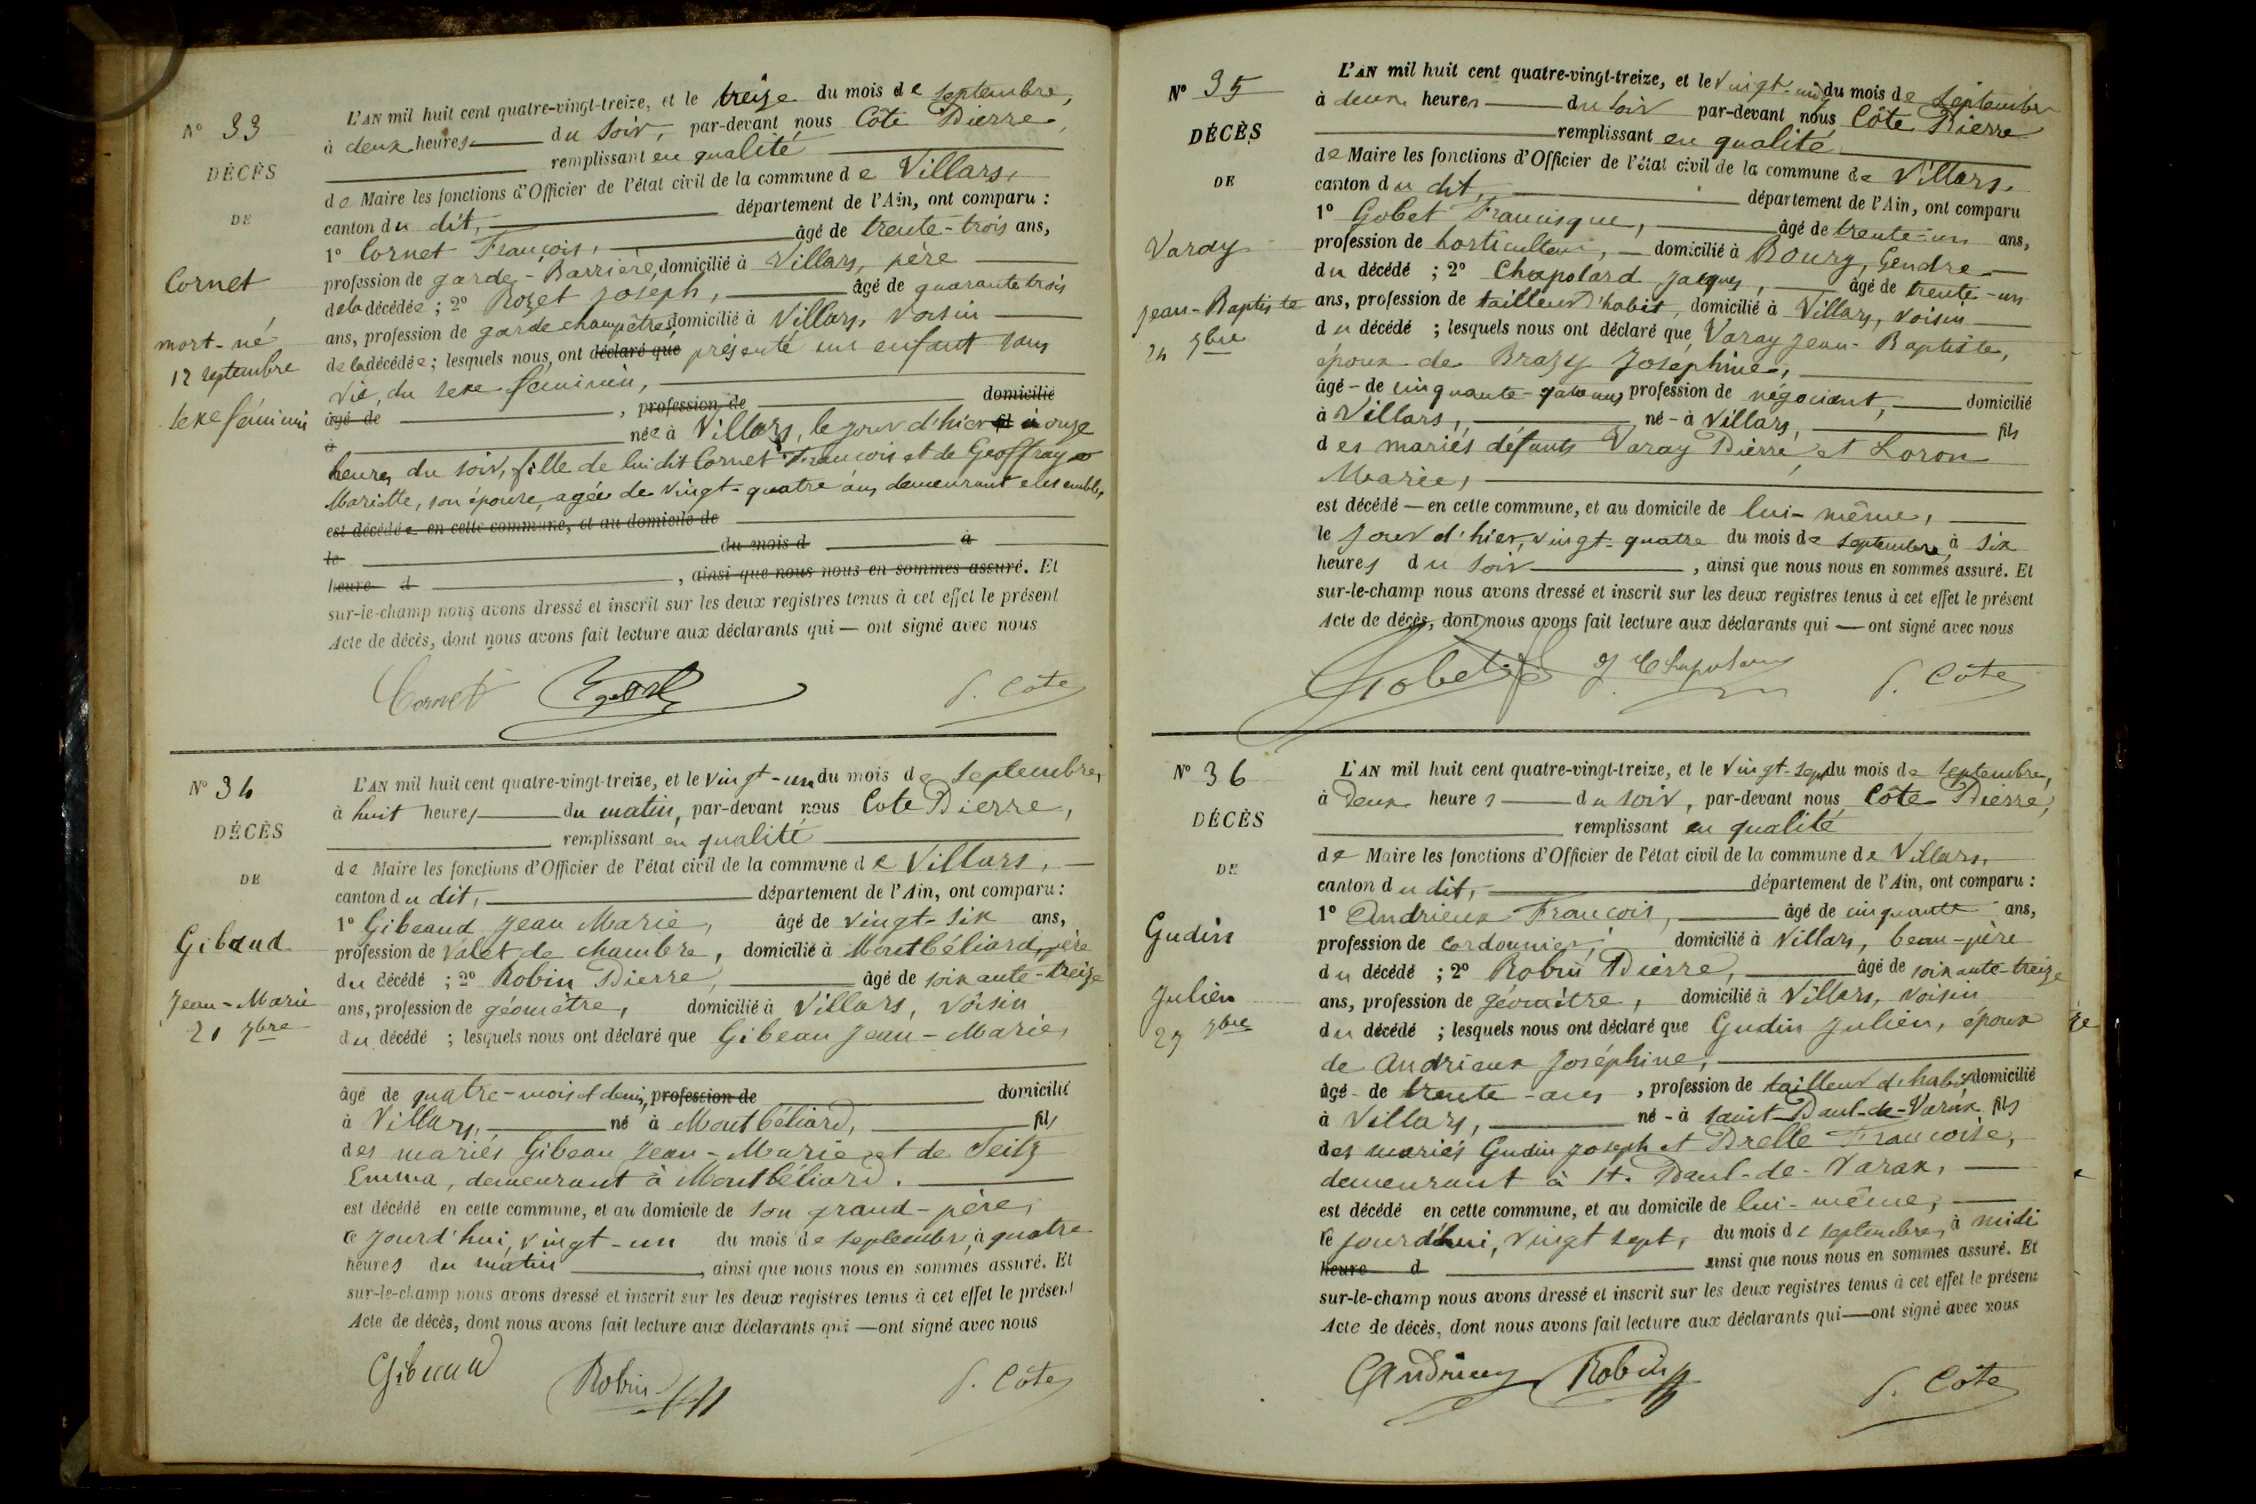 N° 33
DÉCÈS
DE
Cornet
mort-né
12 septembre
sexe féminin
L'AN mil huit cent quatre-vingt-treize, et le treize du mois de septembre,
à deux heures du soir, par-devant nous Côte Pierre,
remplissant en qualité
de Maire les fonctions d'Officier de l'état civil de la commune de Villars,
canton du dit, département de l'Ain, ont comparu :
1° Cornet François, âgé de trente-trois ans,
profession de garde-Barrière, domicilié à Villars, père
de la décédée ; 2° Rozet Joseph, âgé de quarante trois
ans, profession de garde champêtre domicilié à Villars, voisin
de la décédée ; lesquels nous ont déclaré que présenté un enfant sans
vie, du sexe féminin,
âgé de , profession de domicilié
à née à Villars, le jour d'hier à onze
heures du soir, fille de lui dit Cornet François et de Geoffray
Mariette, son épouse, agée de vingt-quatre ans, demeurant ensemble,
est décédée en cette commune, et au domicile de
le du mois d à
heure d , ainsi que nous nous en sommes assuré. Et
sur-le-champ nous avons dressé et inscrit sur les deux registres tenus à cet effet le présent
Acte de décès, dont nous avons fait lecture aux déclarants qui — ont signé avec nous
Cornet P. Côte
N° 34
DÉCÈS
DE
Gibaud
Jean-Marie
21 7bre
L'AN mil huit cent quatre-vingt-treize, et le vingt-un du mois de septembre,
à huit heures du matin, par-devant nous Cote Pierre,
remplissant en qualité
de Maire les fonctions d'Officier de l'état civil de la commune de Villars,
canton du dit, département de l'Ain, ont comparu :
1° Gibeaud Jean Marie, âgé de vingt-six ans,
profession de valet de chambre, domicilié à Montbéliard, père
du décédé ; 2° Robin Pierre, âgé de soixante-treize
ans, profession de géomètre, domicilié à Villars, voisin
du décédé ; lesquels nous ont déclaré que Gibeau Jean-Marie,
âgé de quatre-mois et demi, profession de domicilié
à Villars, né à Montbéliard, fils
des mariés Gibeau Jean-Marie et de Seitz
Emma, demeurant à Montbéliard.
est décédé en cette commune, et au domicile de son grand-père,
ce jourd'hui, vingt-un du mois de septembre, à quatre
heures du matin , ainsi que nous nous en sommes assuré. Et
sur-le-champ nous avons dressé et inscrit sur les deux registres tenus à cet effet le présent
Acte de décès, dont nous avons fait lecture aux déclarants qui — ont signé avec nous
Gibeaud Robin P. Côte
N° 35
DÉCÈS
DE
Varay
Jean-Baptiste
24 7bre
L'AN mil huit cent quatre-vingt-treize, et le vingt- du mois de septembre
à deux heures du soir par-devant nous Côte Pierre
remplissant en qualité
de Maire les fonctions d'Officier de l'état civil de la commune de Villars,
canton du dit, département de l'Ain, ont comparu
1° Gobet Francisque, âgé de trente-un ans,
profession de horticulteur, domicilié à Bourg, Gendre
du décédé ; 2° Chapolard Jacques, âgé de trente-un
ans, profession de tailleur d'habit, domicilié à Villars, voisin
du décédé ; lesquels nous ont déclaré que Varay Jean-Baptiste,
époux de Brazy Joséphine,
âgé de cinquante- ans profession de négociant, domicilié
à Villars, né à Villars, fils
des mariés défunts Varay Pierre et Loron
Marie,
est décédé — en cette commune, et au domicile de lui-même,
le jour d'hier, vingt-quatre du mois de septembre à six
heures du soir , ainsi que nous nous en sommes assuré. Et
sur-le-champ nous avons dressé et inscrit sur les deux registres tenus à cet effet le présent
Acte de décès, dont nous avons fait lecture aux déclarants qui — ont signé avec nous
Gobet J Chapolard P. Côte
N° 36
DÉCÈS
DE
Gudin
Julien
27 7bre
L'AN mil huit cent quatre-vingt-treize, et le vingt-sept du mois de septembre,
à Deux heures du soir, par-devant nous Côte Pierre,
remplissant en qualité
de Maire les fonctions d'Officier de l'état civil de la commune de Villars,
canton du dit, département de l'Ain, ont comparu :
1° Andrieux François, âgé de cinquante ans,
profession de cordonnier, domicilié à Villars, beau-père
du décédé ; 2° Robin Pierre, âgé de soixante-treize
ans, profession de géomètre, domicilié à Villars, voisin
du décédé ; lesquels nous ont déclaré que Gudin Julien, époux
de Andrieux Joséphine,
âgé de trente-ans , profession de tailleur d'habits domicilié
à Villars, né à saint-Paul-de-Varax fils
des mariés Gudin Joseph et Prelle Françoise,
demeurant à St. Paul-de-Varax,
est décédé en cette commune, et au domicile de lui-même,
ce jourd'hui, vingt sept, du mois de septembre, à midi
heure d ainsi que nous nous en sommes assuré. Et
sur-le-champ nous avons dressé et inscrit sur les deux registres tenus à cet effet le présent
Acte de décès, dont nous avons fait lecture aux déclarants qui — ont signé avec nous
Andrieux Robin P. Côte